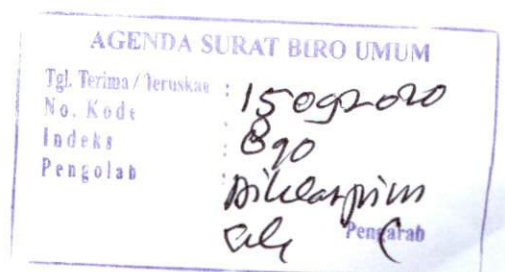 AGENDA SURAT BIRO UMUM
Tgl. Terima / Teruskan : 15092020
No. Kode :
Indeks : 890
Pengolah : Diklatpim
Pengarah